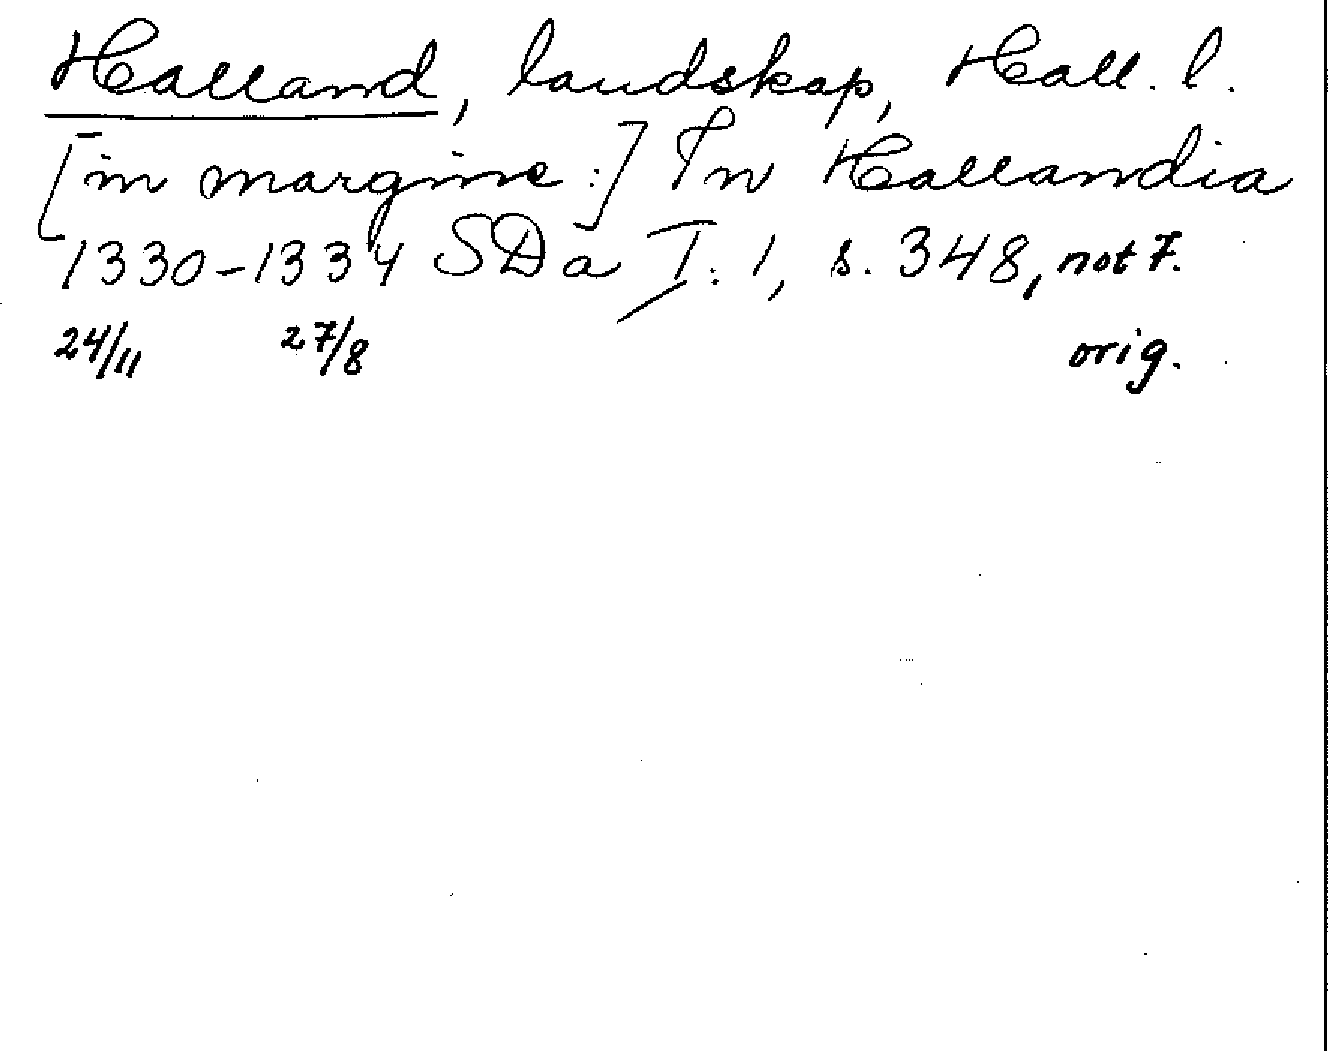 Halland, landskap, Hall. l.
[in margine:] In Hallandia
1330-1334 SDa I: 1, s. 348, not 7.
24/11 27/8 orig.